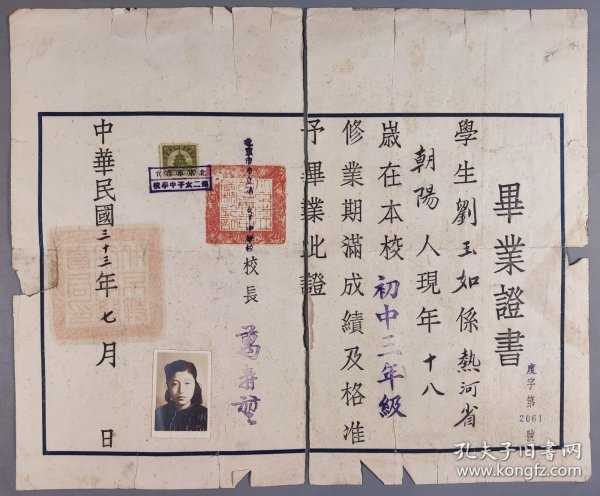 畢業證書
度字第2061號
學生劉玉如係熱河省
朝陽人現年十八
歲在本校初中三年級
修業期滿成績及格准
予畢業此證
校長
北京市市立
第二女子中學校
中華民國三十三年七月 日
孔夫子旧书网
www.kongfz.com